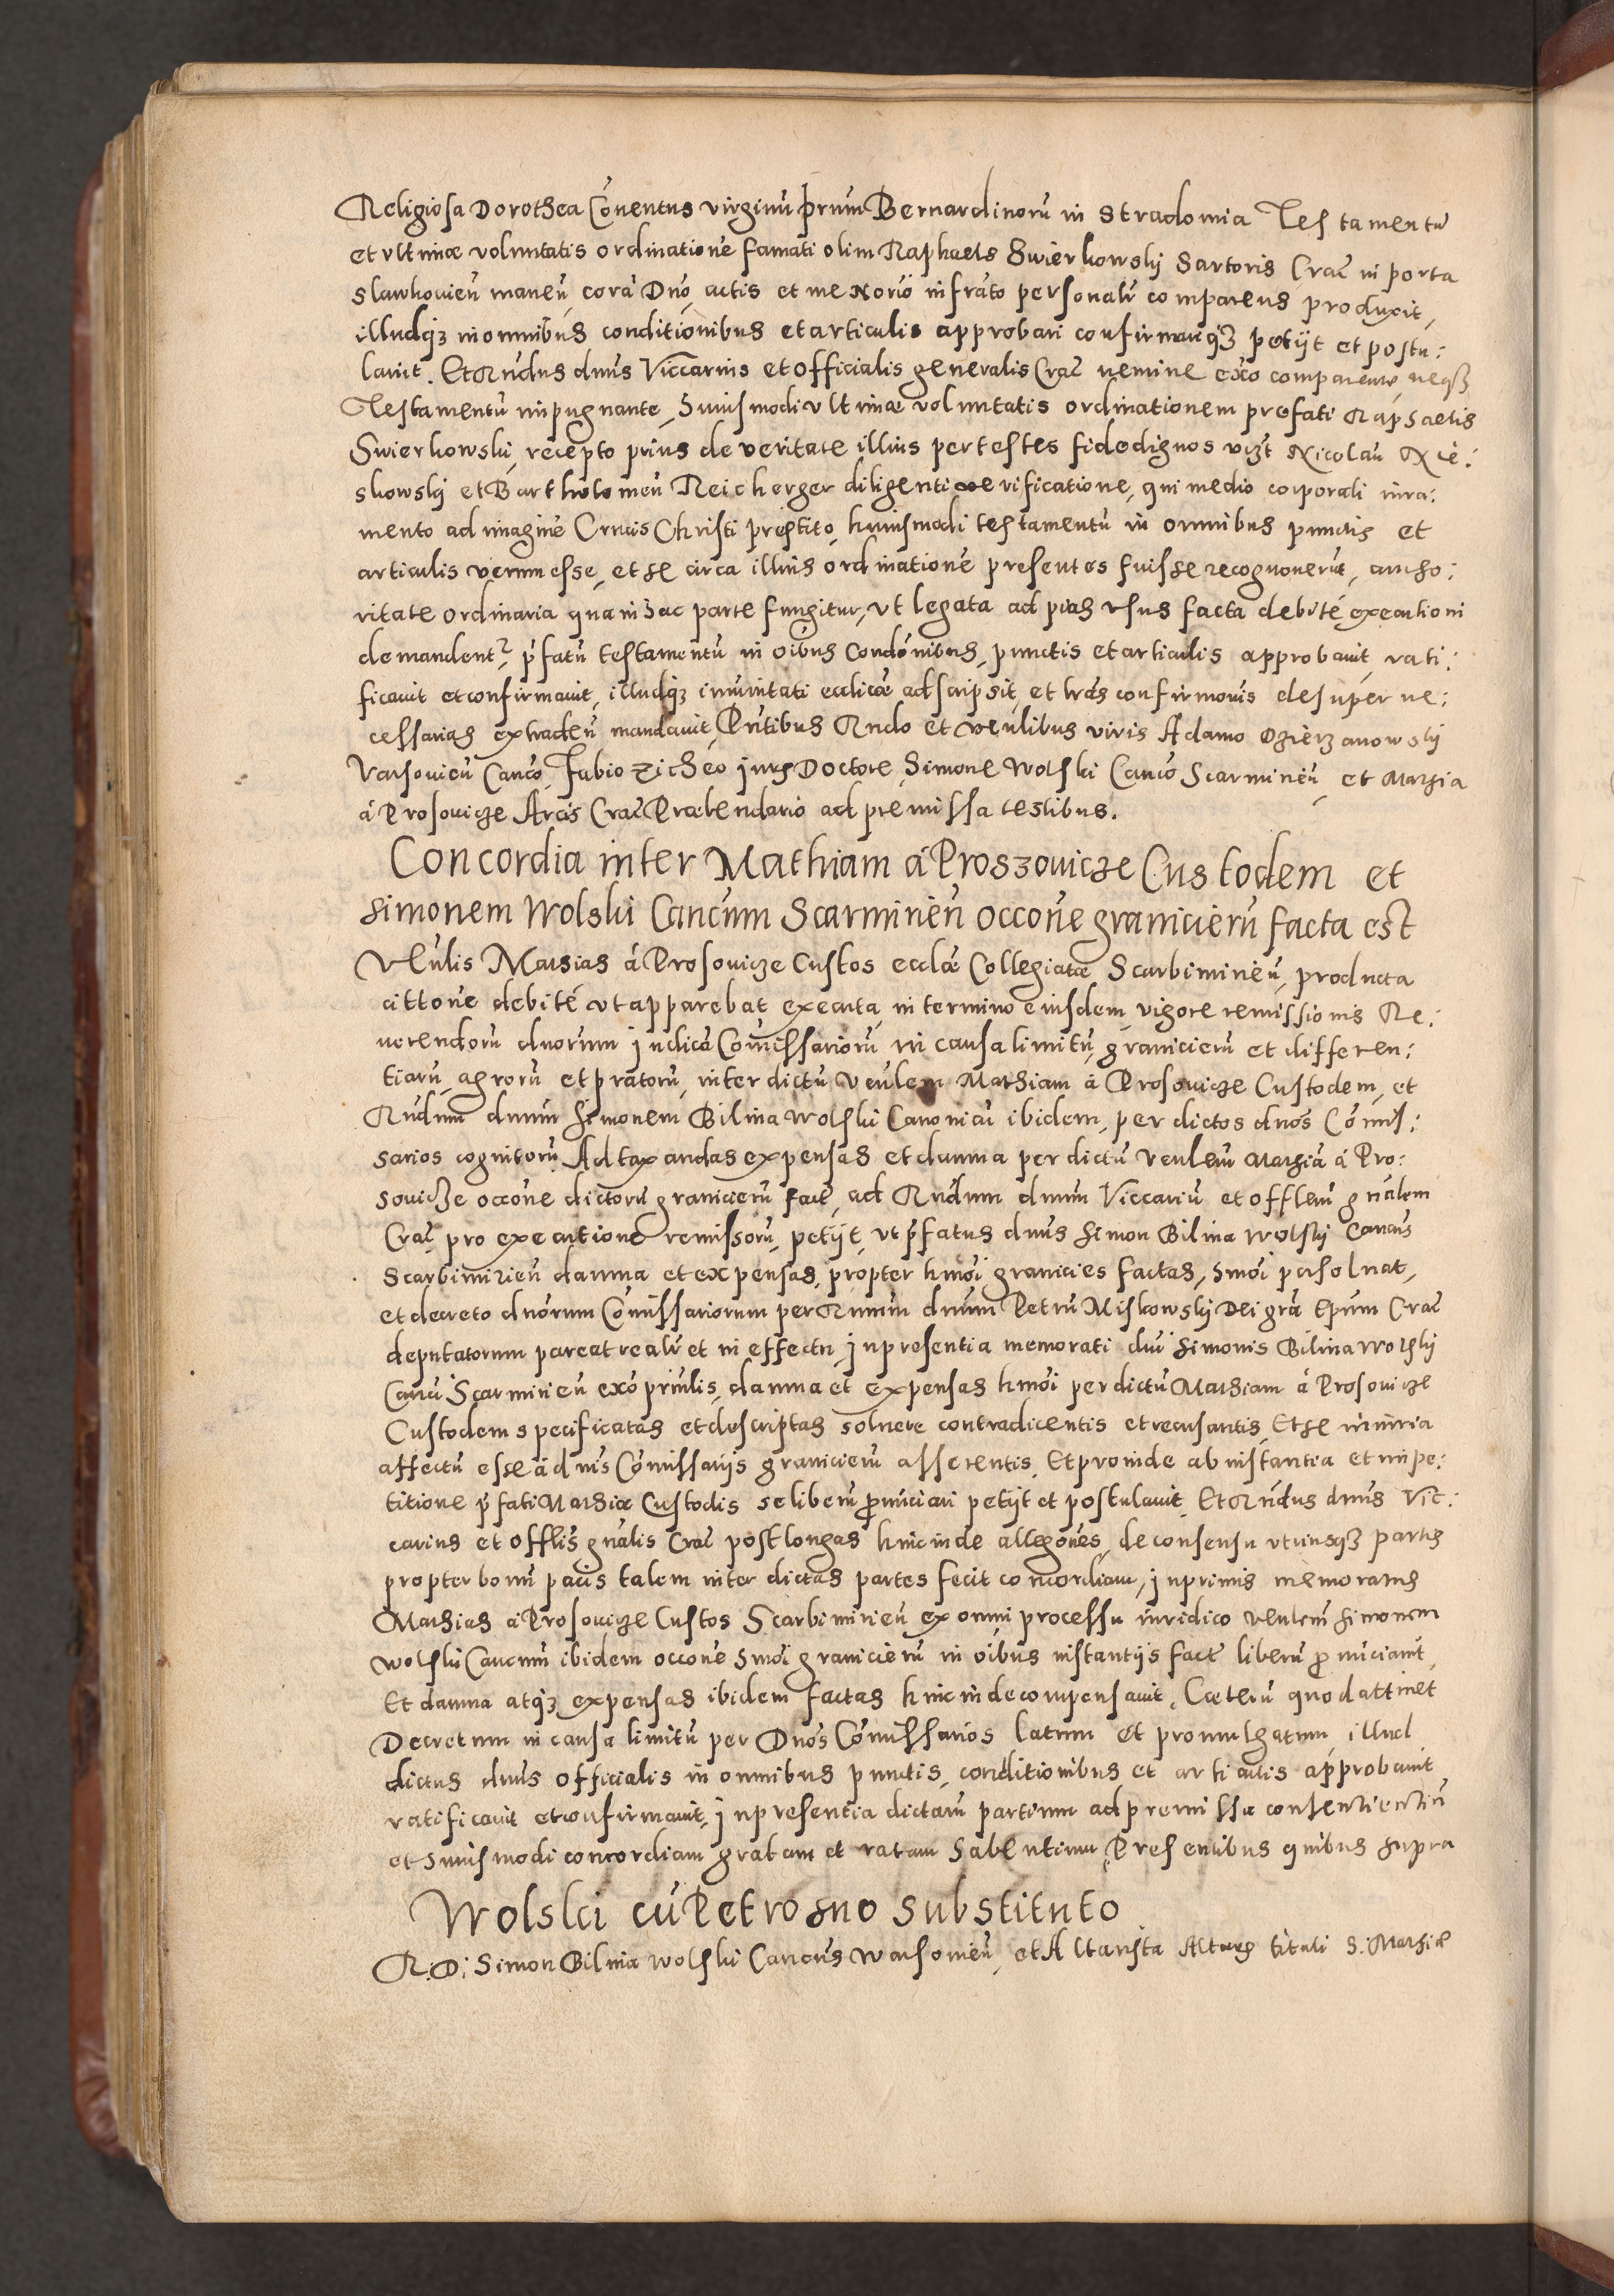 Religiosa Dorothea Cōnentus virginū p̄rum Bernardinorū in Stradomia Testamentū
et vltimæ voluntatis ordinationē famati olim Raphaelis Swierkowskÿ Sartoris Crac̄ in porta
slawkovieñ maneñ corā Dn̄o actis et me Notrio infrato personalr̄ comparens produxit,
illudq̄ȝ in omnibus conditionibus et articulis approbari confirmariq̄ȝ petijt et postu:
lauit. Et R̄ndus dn̄us Viccarius et Officialis generalis Crac̄ nemine ex̄o comparente, neq̄ȝ
Testamentū impugnante, Huiusmodi vltimæ voluntatis ordinationem prefati Raphaelis
Swierkowski, recepto prius de veritate illius per testes fidedignos vizt Nicolaū Nie:
skowskÿ et Bartholomeū Reicherger diligenti verificatione, qui medio corporali iura:
mento ad imaginē Crucis Christi prestito, huiusmodi testamentū in omnibus punctis et
articulis verum esse, et se circa illius ordinationē presentes fuisse recognouerūt, autho:
ritate ordinaria qua in hac parte fungitur, vt legata ad pias vsus facta debité executioni
demandentr, p̄fatū testamentū in oībus Condōnibus, punctis et articulis approbauit rati:
ficauit et confirmauit, illudq̄ȝ imūnitati ecclicæ adscripsit, et lrās confirmōnis desuper ne:
cessarias extradeñ mandauit, Pn̄tibus Rndo et Ven̄libus viris Adamo Ozierzanowskÿ
Varsovieñ Canco, Fabio Zicheo Juris Doctore, Simone Wolski Canco Scarmirieñ, et Mathia
á Prosovicze Arcis Crac̄ Præbendario ad premissa testibus.
Concordia inter Mathiam á Proszovicze Custodem et
Simonem Wolski Cancum Scarmirieñ occōne granicierū facta est
Ven̄lis Mathias á Prosovicze Custos ecclæ Collegiatæ Scarbimirieñ, producta
cittōne debité vt apparebat executa, in termino eiusdem, vigore remissionis Re:
uerendorū dnorum Judicū Com̄issariorū in causa limitū, granicierū et differen:
tiarū, agrorū et pratorū, inter dictū Ven̄lem Mathiam á Prosovicze Custodem, et
Rndum dnum Simonem Bilina Wolski Canonicū ibidem, per dictos dnōs Com̄is:
sarios cognitorū, Ad taxandas expensas et damna per dictū Ven̄lem Mathiā á Pro:
sovicze occōne dictorū granicierū fact̄, ad Rndum dnum Viccariū et Offlem gn̄alem
Crac̄, pro executione remissorū, petijt, vt p̄fatus dnus Simon Bilina Wolskÿ Cancus
Scarbimirieñ damna et expensas, propter hmōi granicies factas, hmōi persoluat,
et decreto dnōrum Com̄issariorum per R̄mum dnum Petrū Miskowskÿ Dei grā Epum Crac̄
deputatorum pareat realr̄ et in effectu, In presentia memorati dni Simonis Bilina Wolskÿ
Canci Scarmirieñ exō priūlis, damna et expensas hmōi per dictū Mathiam á Prosovicze
Custodem specificatas et descriptas soluere contradicentis et recusantis, Et se iniuria
affectū esse á dnis Com̄issarijs granicierū asserentis, Et proinde ab instantia et impe:
titione p̄fati Mathiæ Custodis se liberū pronūciari petijt et postulauit, Et R̄ndus dnus Vic:
carius et Offlis gn̄alis Crac̄ post longas hincinde allegōnes, de consensu vtriusq̄ȝ partis
propter bonū pacis talem inter dictas partes fecit concordiam, Inprimis memoratus
Mathias á Prosovicze Custos Scarbimirieñ ex omni processu iuridico Ven̄lem Simonem
Wolski Cancum ibidem occōne hmōi granicierū in oībus instantijs fact̄ liberū pronūciauit,
Et damna atq̄ȝ expensas ibidem factas hincinde compensauit, Cæterū quod attinet
Decretum in causa limitū per Dnōs Com̄issarios latum et promulgatum, illud
dictus dnus officialis in omnibus punctis, conditionibus et articulis approbauit
ratificauit et confirmauit, In presentia dictarū partium ad premissa consentientiū
et huiusmodi concordiam gratam et ratam habentium, Presentibus quibus supra
Wolski cū Petro suo substituto
R: D: Simon Bilina Wolski Cancus Warsovieñ, et Altarista Altaris tituli S: Mathiæ